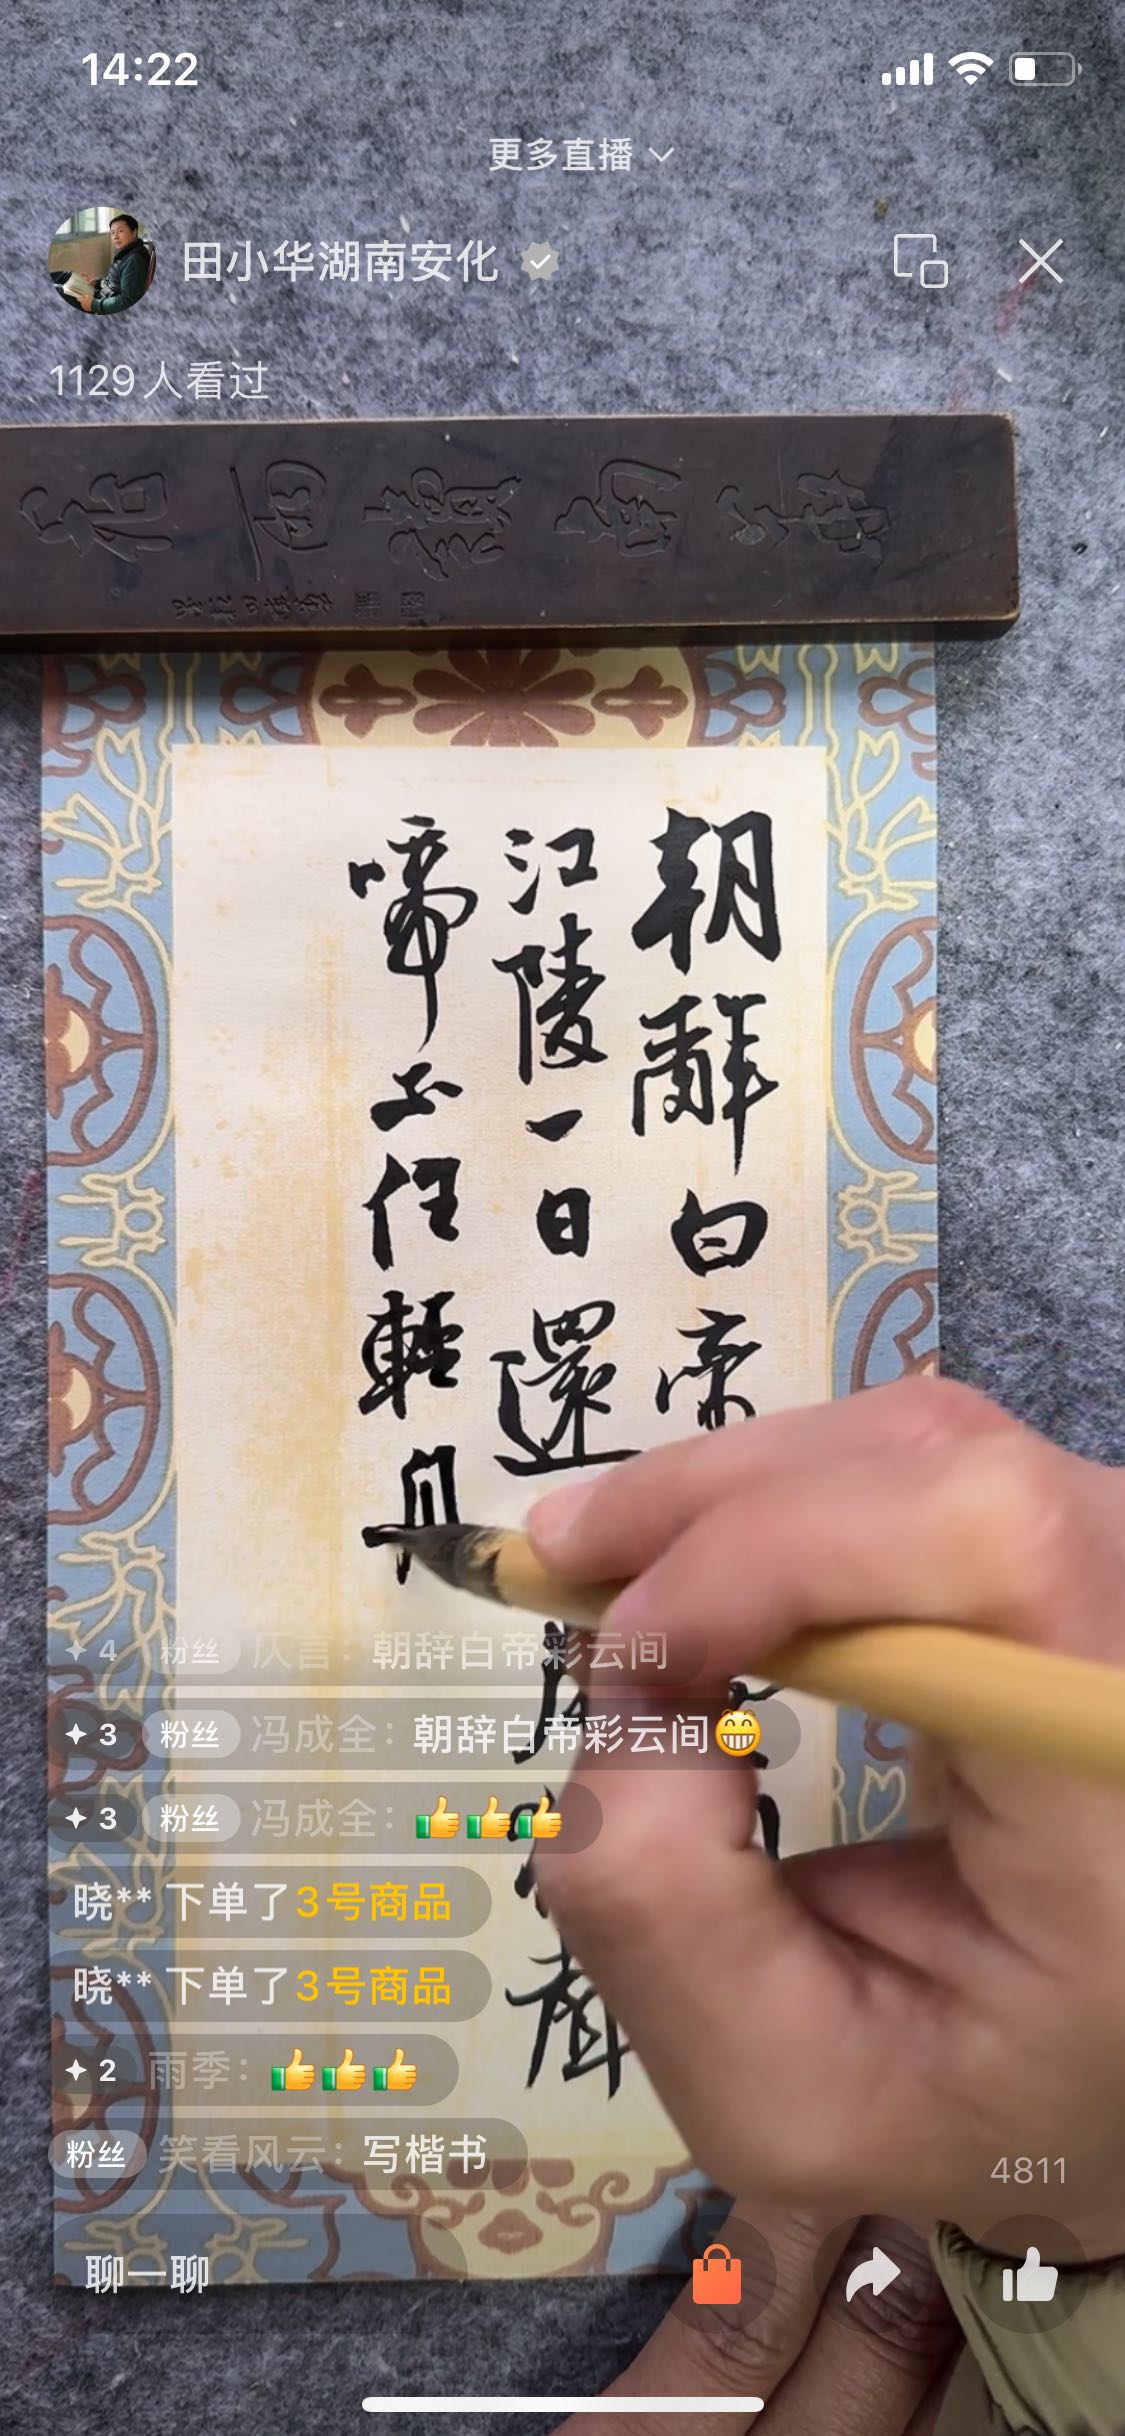 14:22
更多直播
田小华湖南安化
1129人看过
朝辭白帝
江陵一日還
聲
啼不住輕舟
4 粉丝 仄言：朝辞白帝彩云间
3 粉丝 冯成全：朝辞白帝彩云间😁
3 粉丝 冯成全：👍👍👍
晓** 下单了3号商品
晓** 下单了3号商品
2 雨季：👍👍👍
粉丝 笑看风云：写楷书
4811
聊一聊